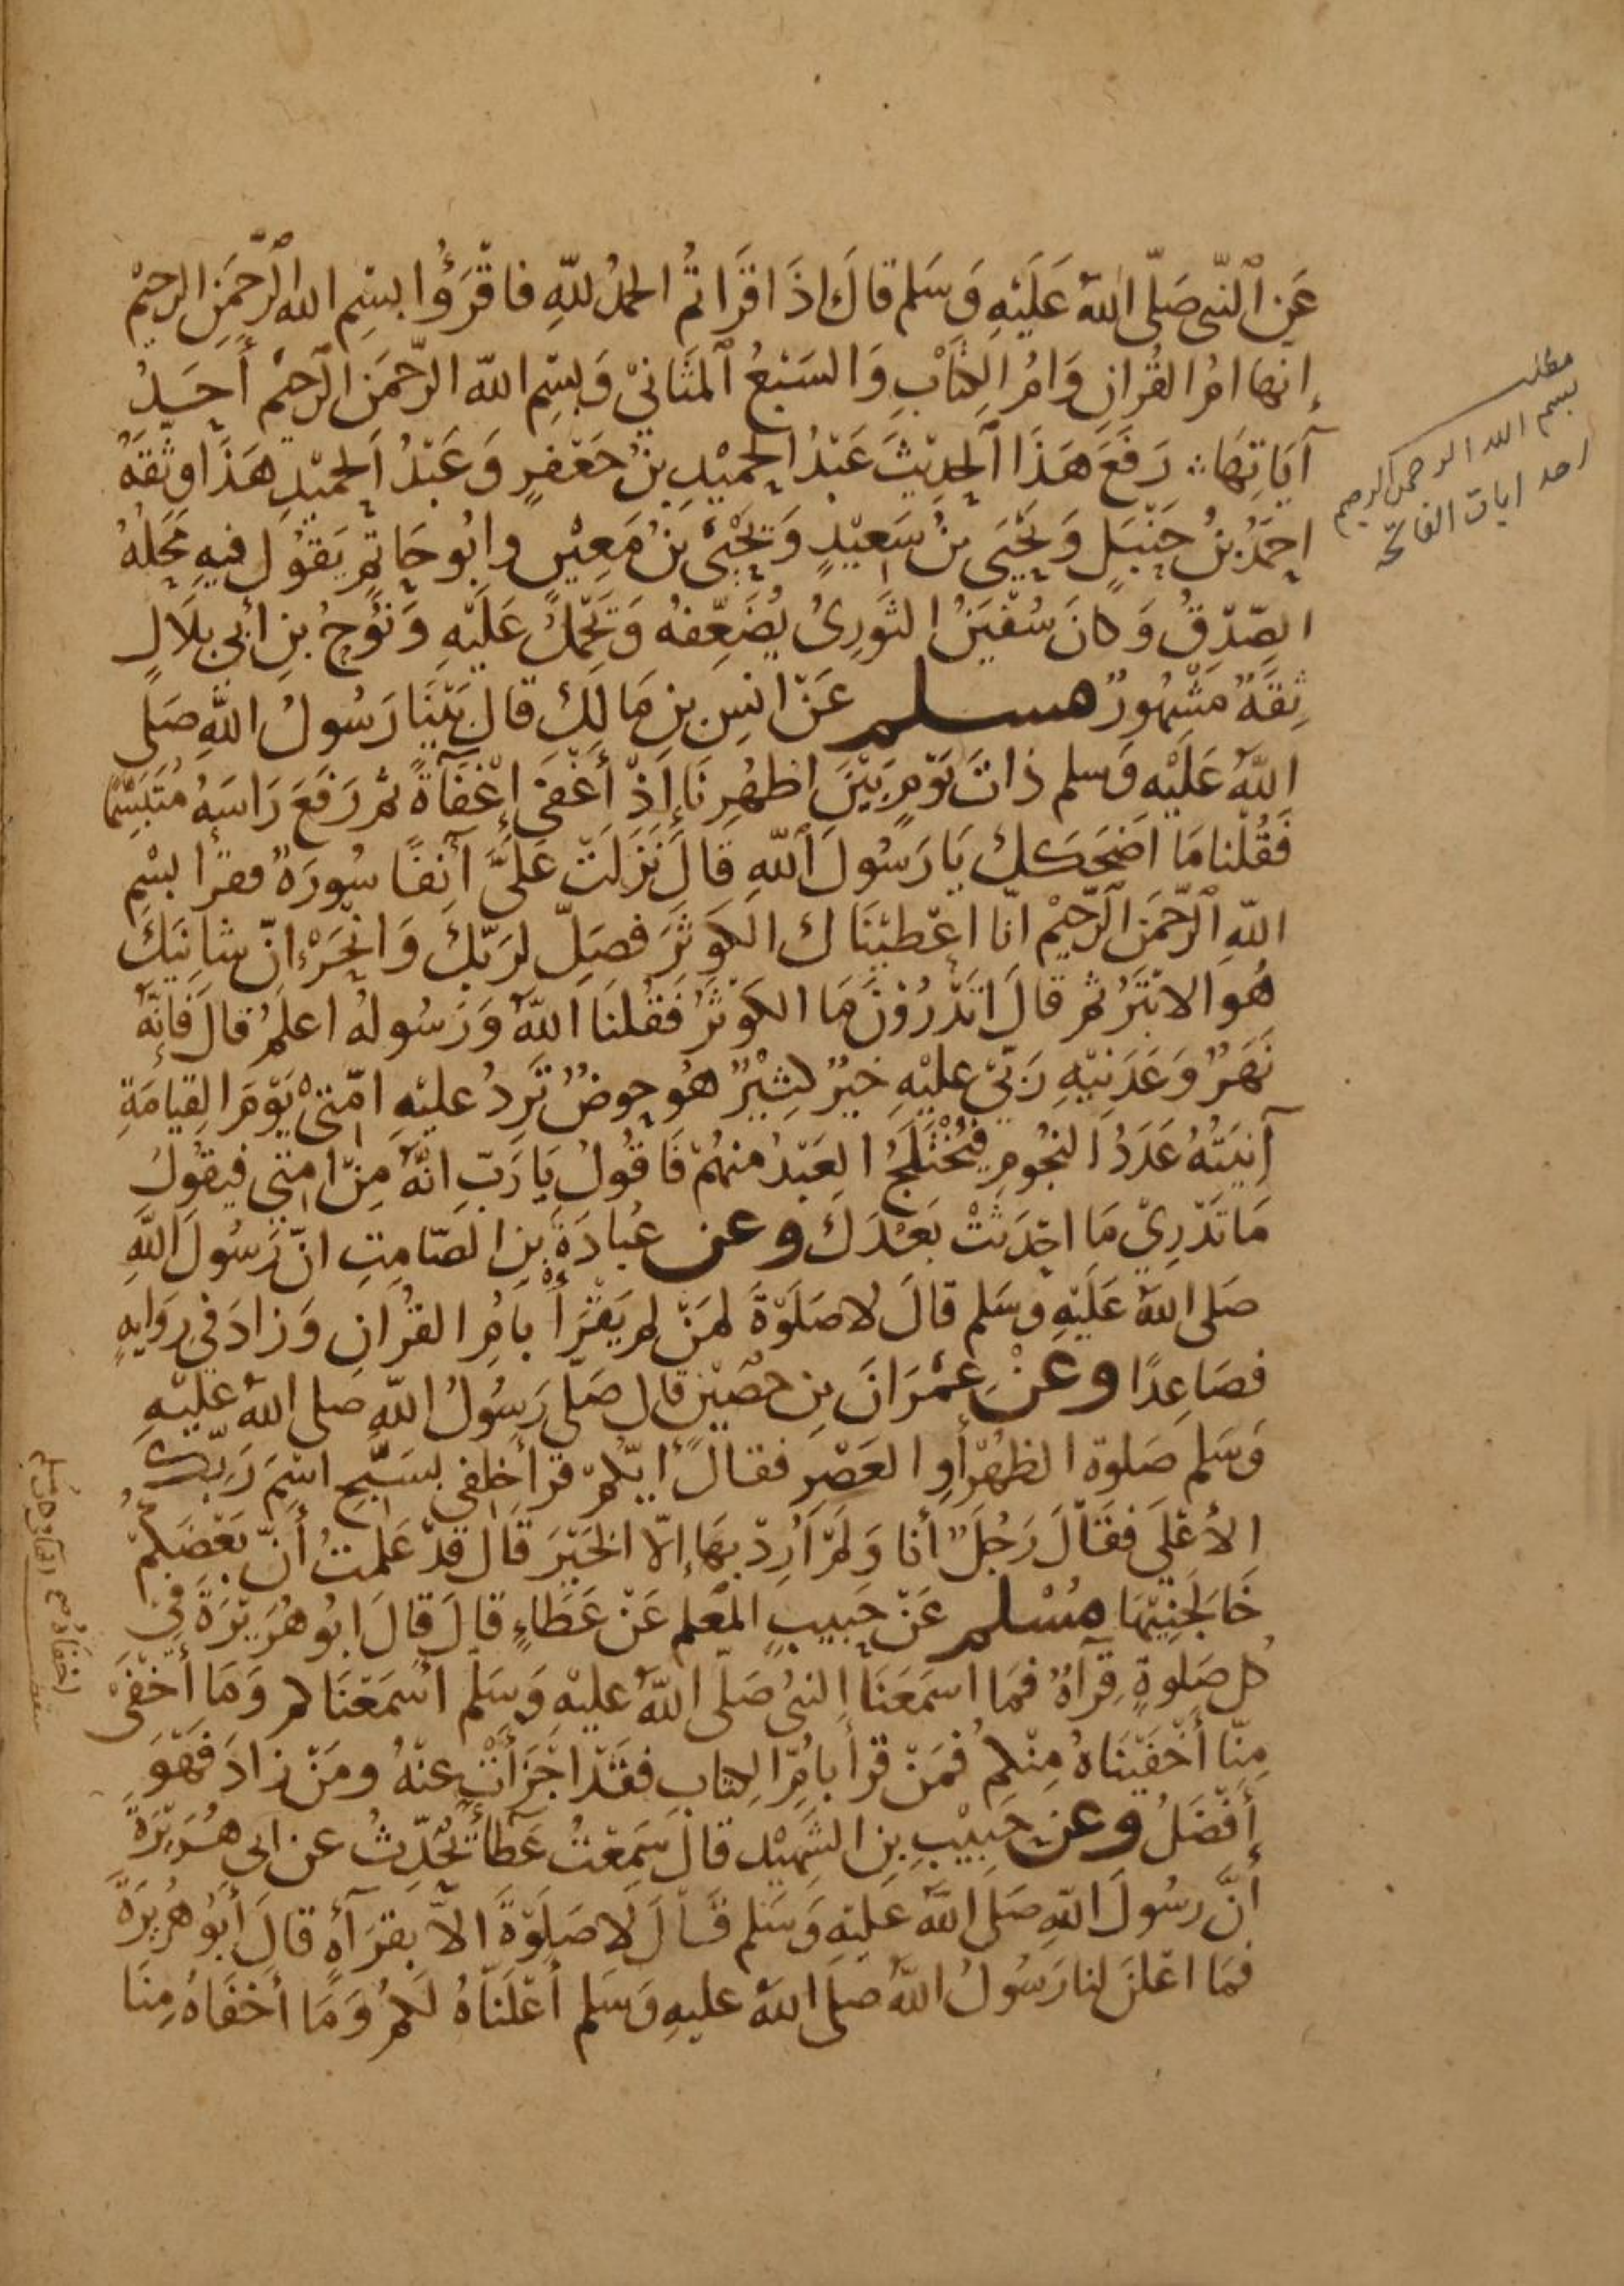 عَنِ ٱلنَّبِيّ صَلَّى اللّٰهُ عَلَيْهِ وَسَلم قالَ اِذَا قَرَاتمُ الحمدُ للّهِ فاقْرَؤُا بسْمِ الله الرَّحْمَنِ الرحيْم
إنها امُ القُرانِ وَامُ الكِتَابِ وَالسَبْعُ ٱلمثَانيْ وَبسْمِ اللّه الرّحْمَنِ الرَحيْم أحَدُ
آيَاتِهَا رَفَعَ هَذَا الحدِيْثَ عَبْدُ الحمِيْدِ بنُ جَعْفرٍ وَعَبْدُ الحميْدِ هَذَا وثّقَهُ
احمَدُ بنُ حَنْبَلٍ وَيَحْيَى بنُ سَعِيْدٍ وَيَحْيَى بنُ مَعِيْنٍ وابُو حَاتمٍ يَقوُل فيهِ مَحَلهُ
الصّدْقُ وَكانَ سُفْيَنُ الثوَرِىُ يُضَعِّفهُ وَيَحْمِلُ عَلَيْهِ وَنوُحُ بنِ أبي بلَالٍ
ثِقَةٌ مَشْهُورٌ مسلم عَنْ انسِ بنِ مَالِكٍ قالَ بَيْنَا رَسُولُ اللّهِ صَلى
اللّهُ عَلَيْهِ وَسلم ذاتَ يَوْمٍ بَيْنَ اظهُرِنَا إذْ أغْفَى إغْفَآةً ثم رَفَعَ رَاسَهُ مُتَبَسّمًا
فَقُلْنا مَا اضحَكَكَ يَا رَسُولَ اللّهِ قَالَ نَزَلَتْ عَلَيَّ آنِفًا سُورَةٌ فقرأ بسْمِ
اللّهِ الرّحْمَنِ الرَّحيْم انّا اعْطيْنَاك الكَوثَرَ فصَلِّ لرَبّكَ وَانْحَرْ انّ شانِيَكَ
هُوَ الابْتَرُ ثم قالَ اتَدْرُوْنَ مَا الكوْثرُ فَقُلنَا اللّهُ وَرَسُولهُ اعلمُ قالَ فَإنّهُ
نَهَرٌ وَعَدَنِيْهِ رَبّيْ عليْهِ خيرٌ كثِيْرٌ هُو حوضٌ تَرِدُ عليْهِ امّتِيْ يَوْمَ القِيامَةِ
آنِيَتُهُ عَدَدُ النجُومِ فيُخْتَلَجُ العَبْدُ منهُمْ فَاقُولُ يَا رَبّ انّهُ مِنْ امتِي فيقوُلُ
مَا تَدْرِيْ مَا احْدَثتْ بَعْدَكَ وعن عُبادَةَ بنِ الصّامِتِ انّ رَسُولَ اللّهِ
صَلى اللّهُ عَلَيْهِ وسَلم قالَ لا صَلَوةَ لمَنْ لم يَقْرَأْ بأمِ القُرانِ وَزادَ في روَايهٍ
فصَاعِدًا وعَنْ عِمْرَانَ بنِ حصَيْنٍ قال صَلّى رَسُولُ اللّهِ صَلى اللّهُ عَليْهِ
وَسَلم صَلوة الظهْرِ أوِ العَصْرِ فقالَ أيّكُمْ قرأ خلفِي بسَبّح اسْمَ رَبّكَ
الأعْلى فقَالَ رَجُلٌ أنا وَلَمْ أرِدْ بهَا إلّا الخَيْرَ قَالَ قدْ عَلمتُ أنّ بَعْضَكُمْ
خَالَجَنِيْهَا مُسْلم عَنْ حَبيبٍ المعَلم عَنْ عَطاءٍ قالَ قالَ ابُو هُرَيْرَةَ في
كل صَلوةٍ قِرآةٌ فمَا اسمَعَنَا النبيُ صَلّى اللّهُ عليْهِ وَسَلّم اسْمَعْنَاكم وَمَا أخْفَى
مِنّا أخْفَيْنَاهُ مِنْكمْ فمَنْ قرأ بأمِّ الكِتابِ فقَدْ اجْزَأتْ عنْهُ ومَنْ زادَ فهْوَ
أفْضَلُ وعن حَبِيْبِ بنِ الشّهِيْد قالَ سَمِعْتُ عَطآءً يُحَدِّثُ عن ابي هُرَيْرَةَ
أنّ رسُولَ اللّهِ صَلى اللّهُ عَليْهِ وَسَلم قَالَ لا صَلَوْةَ الاّ بقرَآةٍ قالَ أبُو هُرَيْرَةَ
فمَا اعْلنَ لنا رَسُولُ اللّهُ صلى اللّهُ عليهِ وَسَلم أعْلَنّاهُ لكمْ وَمَا أخْفَاهُ مِنَا
مطلب
بسم الله الرحمن الرحيم
احد ايات الفاتحة